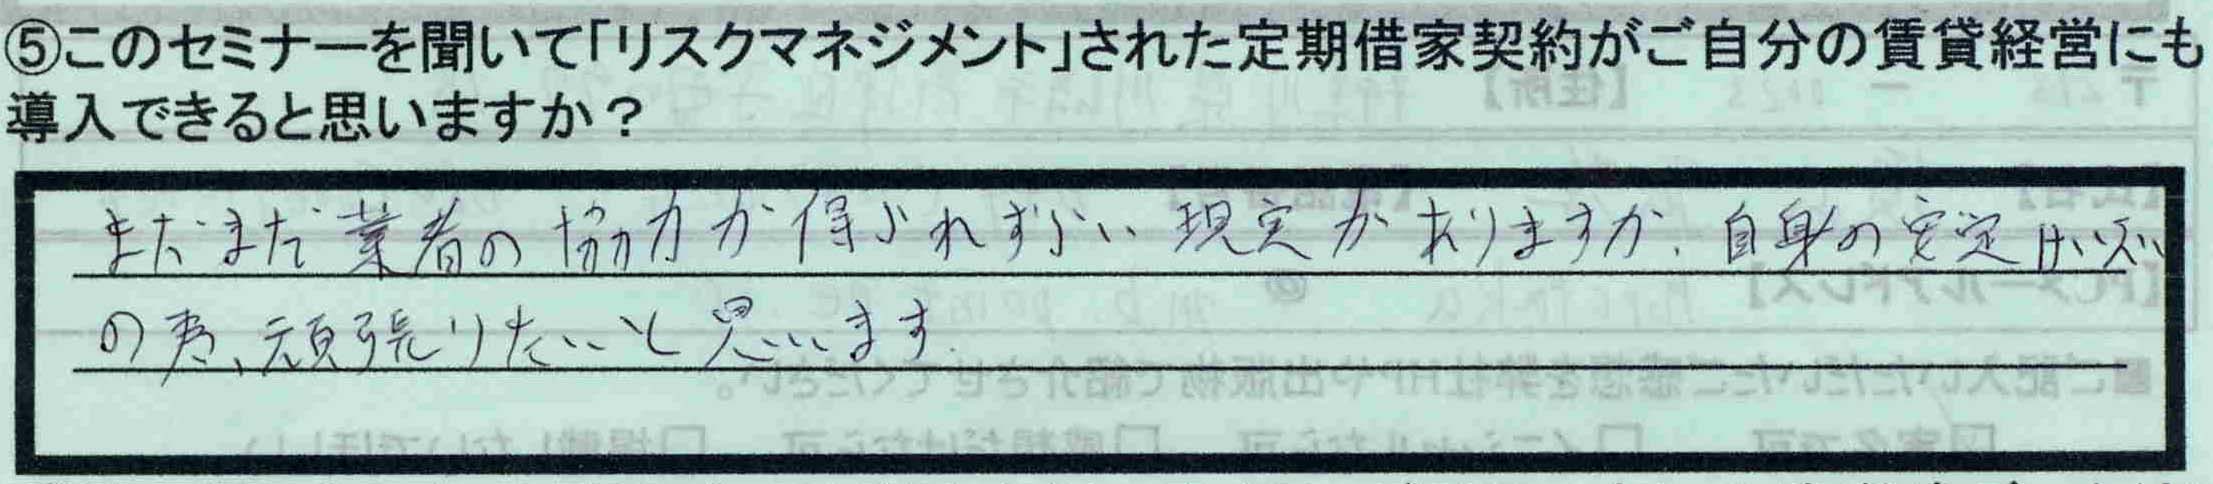 ⑤このセミナーを聞いて「リスクマネジメント」された定期借家契約がご自分の賃貸経営にも
導入できると思いますか？
まだまだ業者の協力が得られずらい現実がありますが、自身の安定
の為、頑張りたいと思います。